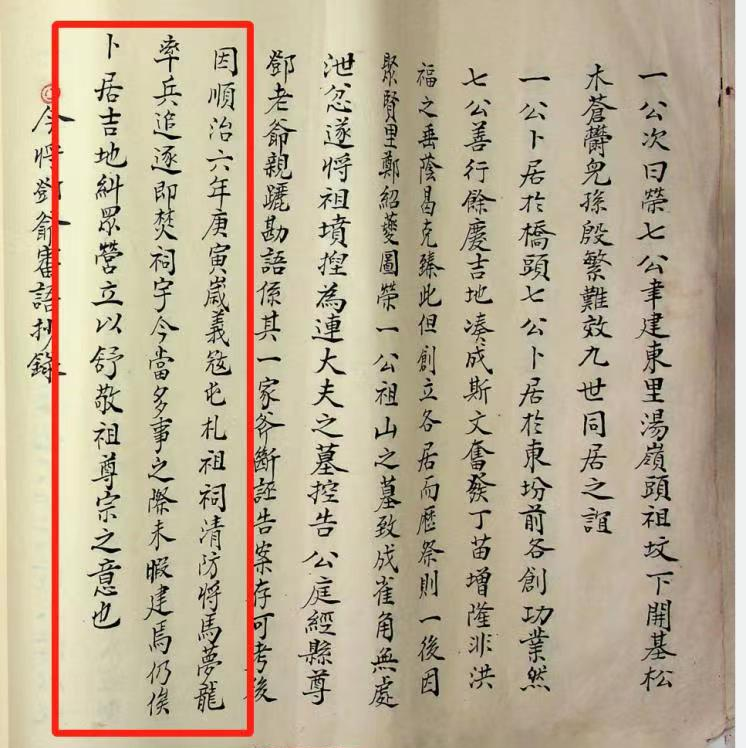 一公次曰榮七公聿建東里湯嶺頭祖坟下開基松
木蒼欝兒孫殷繁難效九世同居之誼
一公卜居於橋頭七公卜居於東坋前各創功業然
七公善行餘慶吉地凑成斯文奮發丁苗增隆非洪
福之垂蔭曷克臻此但創立各居而歷祭則一後因
聚賢里鄭紹夔圖榮一公祖山之墓致成雀角無處
泄忿遂將祖墳揑為連大夫之墓控告公庭經縣尊
鄧老爺親躧勘語係其一家斧斷誣告案存可考後
因順治六年庚寅嵗義寇屯札祖祠清防將馬夢龍
率兵追逐即焚祠宇今當多事之際未暇建焉仍俟
卜居吉地糾眾營立以舒敬祖尊宗之意也
今將鄧爺審語抄錄